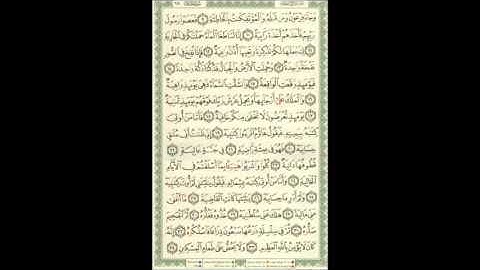 وَجَآءَ فِرْعَوْنُ وَمَن قَبْلَهُۥ وَٱلْمُؤْتَفِكَٰتُ بِٱلْخَاطِئَةِ ٩ فَعَصَوْا۟ رَسُولَ
رَبِّهِمْ فَأَخَذَهُمْ أَخْذَةً رَّابِيَةً ١٠ إِنَّا لَمَّا طَغَا ٱلْمَآءُ حَمَلْنَٰكُمْ فِى ٱلْجَارِيَةِ
١١ لِنَجْعَلَهَا لَكُمْ تَذْكِرَةً وَتَعِيَهَآ أُذُنٌ وَٰعِيَةٌ ١٢ فَإِذَا نُفِخَ فِى ٱلصُّورِ
نَفْخَةٌ وَٰحِدَةٌ ١٣ وَحُمِلَتِ ٱلْأَرْضُ وَٱلْجِبَالُ فَدُكَّتَا دَكَّةً وَٰحِدَةً ١٤
فَيَوْمَئِذٍ وَقَعَتِ ٱلْوَاقِعَةُ ١٥ وَٱنشَقَّتِ ٱلسَّمَآءُ فَهِىَ يَوْمَئِذٍ وَاهِيَةٌ
١٦ وَٱلْمَلَكُ عَلَىٰٓ أَرْجَآئِهَا وَيَحْمِلُ عَرْشَ رَبِّكَ فَوْقَهُمْ يَوْمَئِذٍ ثَمَٰنِيَةٌ
١٧ يَوْمَئِذٍ تُعْرَضُونَ لَا تَخْفَىٰ مِنكُمْ خَافِيَةٌ ١٨ فَأَمَّا مَنْ أُوتِىَ
كِتَٰبَهُۥ بِيَمِينِهِۦ فَيَقُولُ هَآؤُمُ ٱقْرَءُوا۟ كِتَٰبِيَهْ ١٩ إِنِّى ظَنَنتُ أَنِّى مُلَٰقٍ
حِسَابِيَهْ ٢٠ فَهُوَ فِى عِيشَةٍ رَّاضِيَةٍ ٢١ فِى جَنَّةٍ عَالِيَةٍ ٢٢
قُطُوفُهَا دَانِيَةٌ ٢٣ كُلُوا۟ وَٱشْرَبُوا۟ هَنِيٓـًٔۢا بِمَآ أَسْلَفْتُمْ فِى ٱلْأَيَّامِ
ٱلْخَالِيَةِ ٢٤ وَأَمَّا مَنْ أُوتِىَ كِتَٰبَهُۥ بِشِمَالِهِۦ فَيَقُولُ يَٰلَيْتَنِى لَمْ أُوتَ كِتَٰبِيَهْ
٢٥ وَلَمْ أَدْرِ مَا حِسَابِيَهْ ٢٦ يَٰلَيْتَهَا كَانَتِ ٱلْقَاضِيَةَ ٢٧ مَآ أَغْنَىٰ
عَنِّى مَالِيَهْ ٢٨ هَلَكَ عَنِّى سُلْطَٰنِيَهْ ٢٩ خُذُوهُ فَغُلُّوهُ ٣٠ ثُمَّ ٱلْجَحِيمَ
صَلُّوهُ ٣١ ثُمَّ فِى سِلْسِلَةٍ ذَرْعُهَا سَبْعُونَ ذِرَاعًا فَٱسْلُكُوهُ ٣٢ إِنَّهُۥ
كَانَ لَا يُؤْمِنُ بِٱللَّهِ ٱلْعَظِيمِ ٣٣ وَلَا يَحُضُّ عَلَىٰ طَعَامِ ٱلْمِسْكِينِ ٣٤